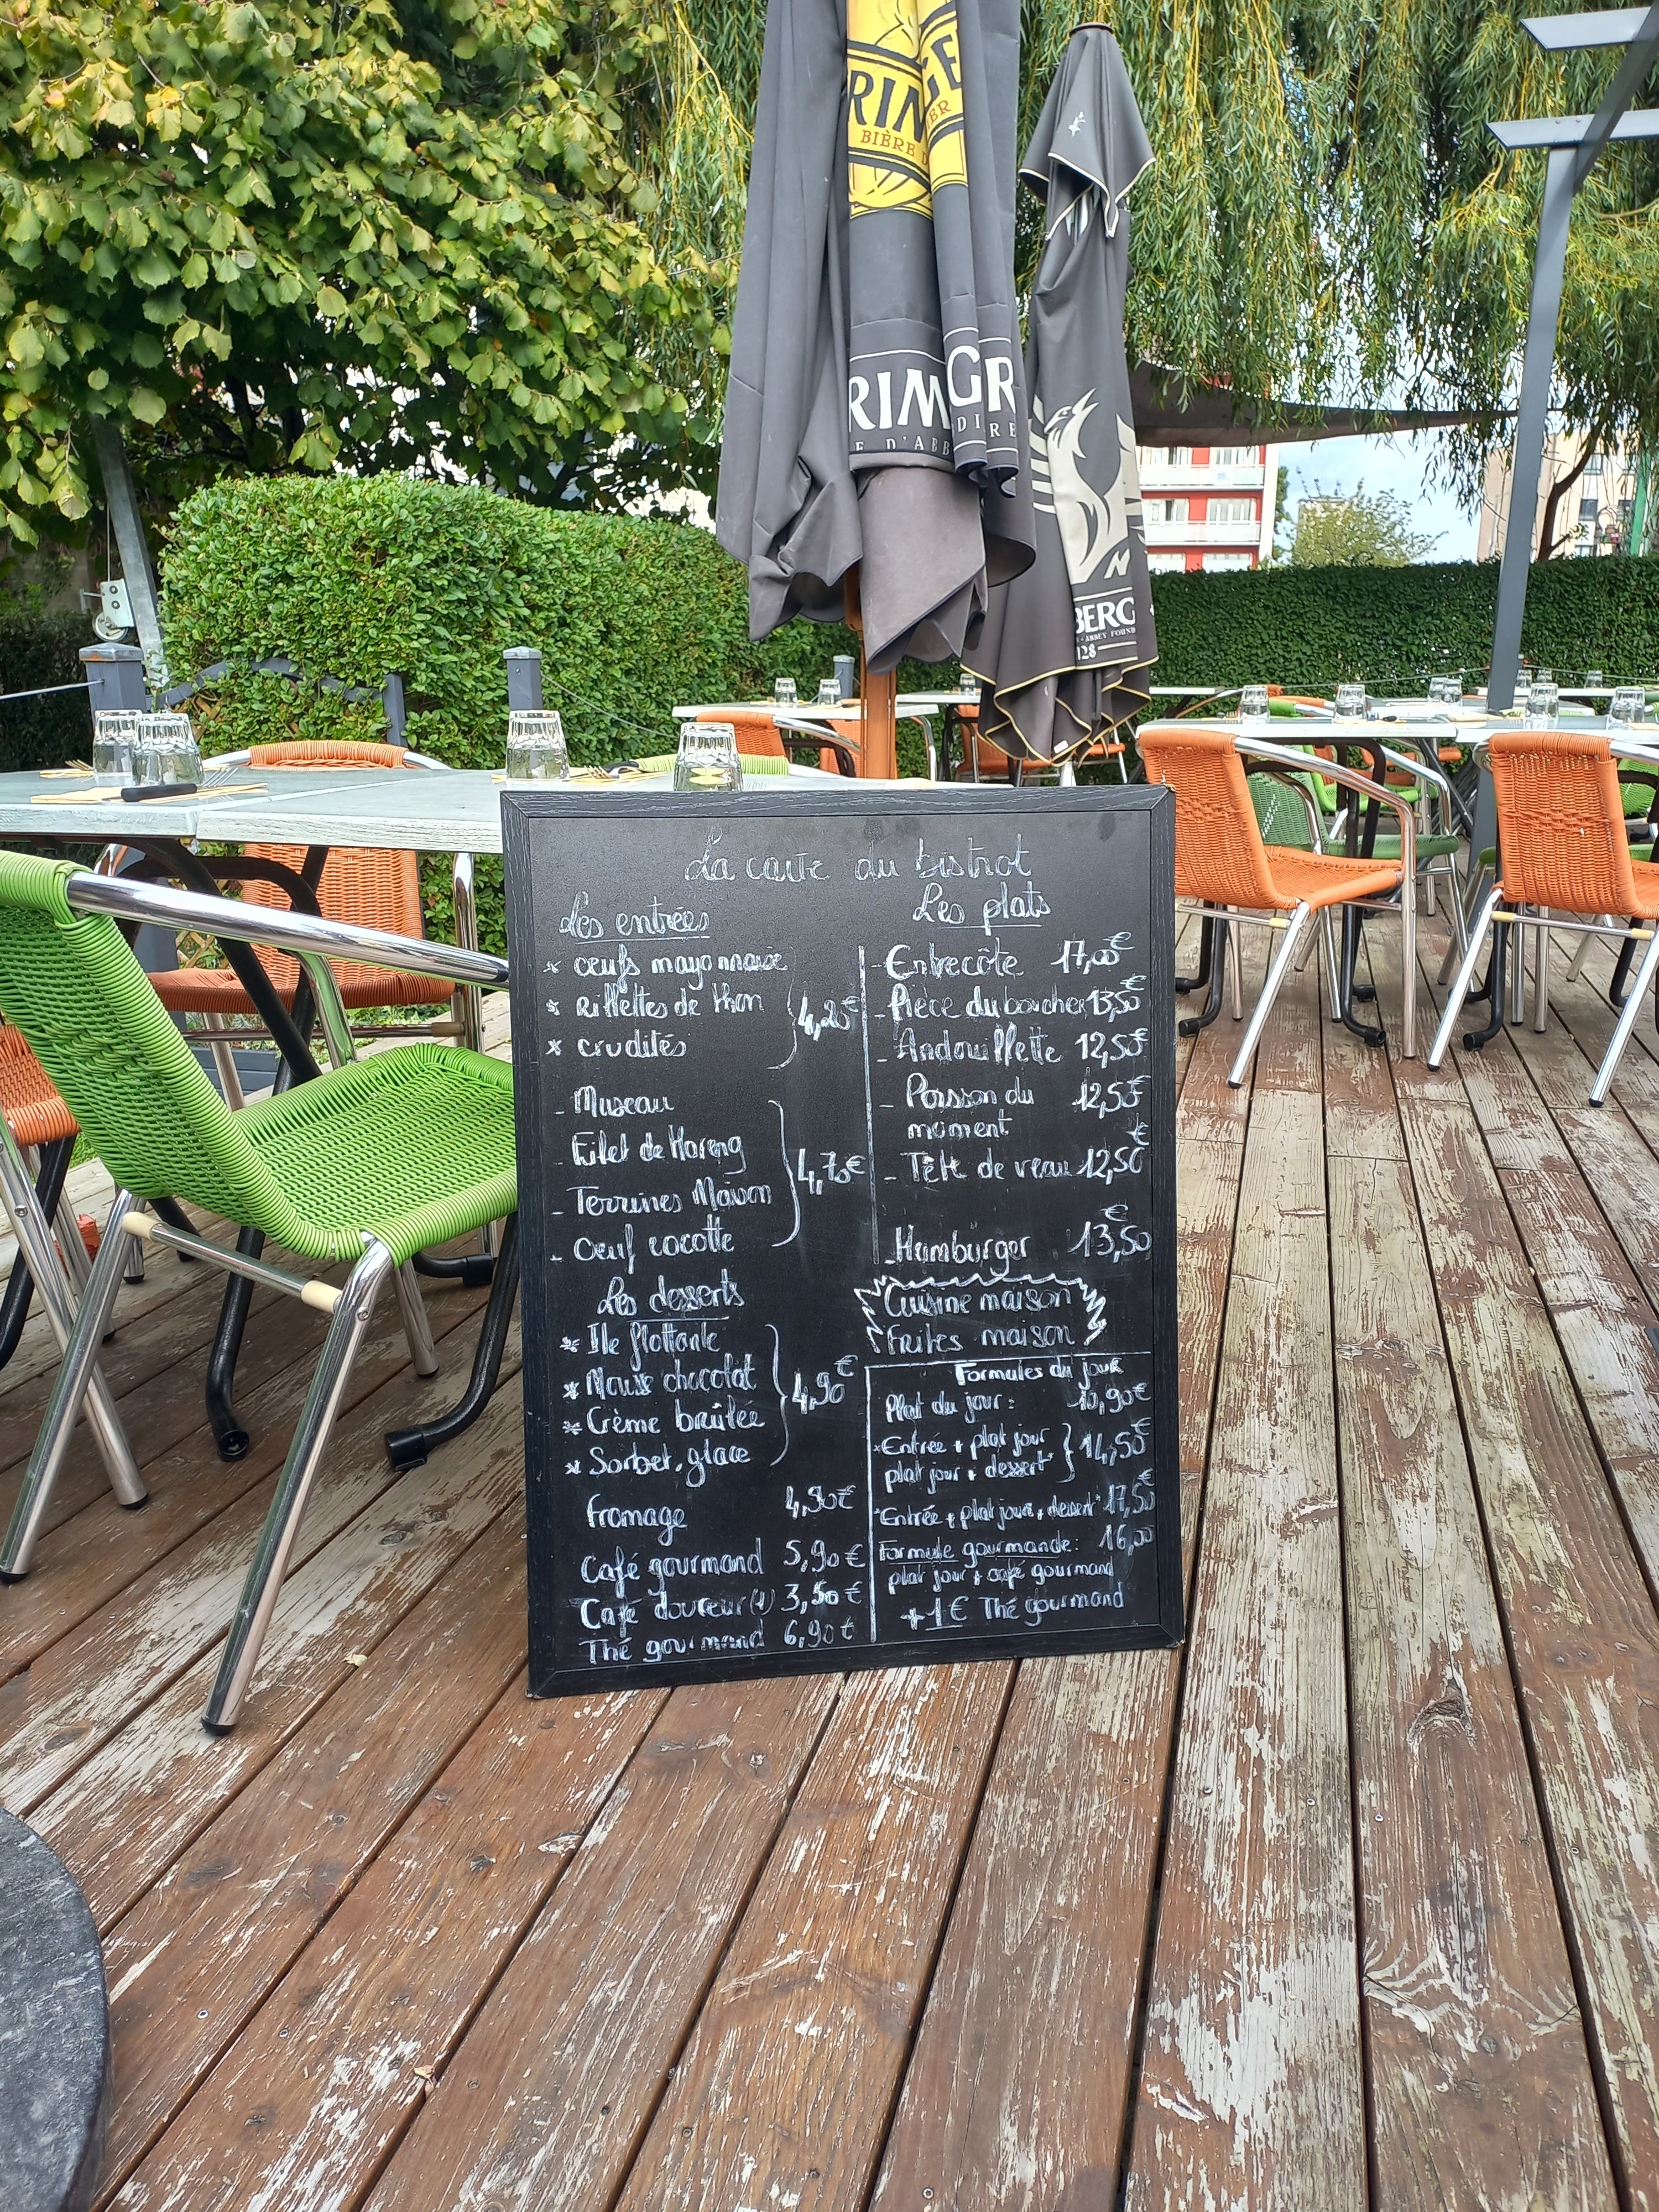 RINGE
BIÈRE
BER
RIM GR
E D'ABB DIRE
BERG
ABBEY FOUND
128
La carte du bistrot
Les entrées
* œufs mayonnaise
* Rillettes de thon
* crudités
4,25€
- Museau
- Filet de Hareng
- Terrines Maison
- Oeuf cocotte
4,75€
Les desserts
* Ile flottante
* Mouss chocolat
* Crème brûlée
* Sorbet, glace
4,90€
fromage 4,90€
Café gourmand 5,90€
Café douceur (1) 3,50€
Thé gourmand 6,90€
Les plats
- Entrecôte 17,00€
- Pièce du boucher 13,50€
- Andouillette 12,50€
- Poisson du 12,50€
moment
- Tête de veau 12,50€
- Hamburger 13,50€
Cuisine maison
Frites maison
Formules du jour
Plat du jour : 10,90€
*Entrée + plat jour
plat jour + dessert*
14,50€
*Entrée + plat jour + dessert* 17,50€
Formule gourmande: 16,00
plat jour + café gourmand
+1€ Thé gourmand